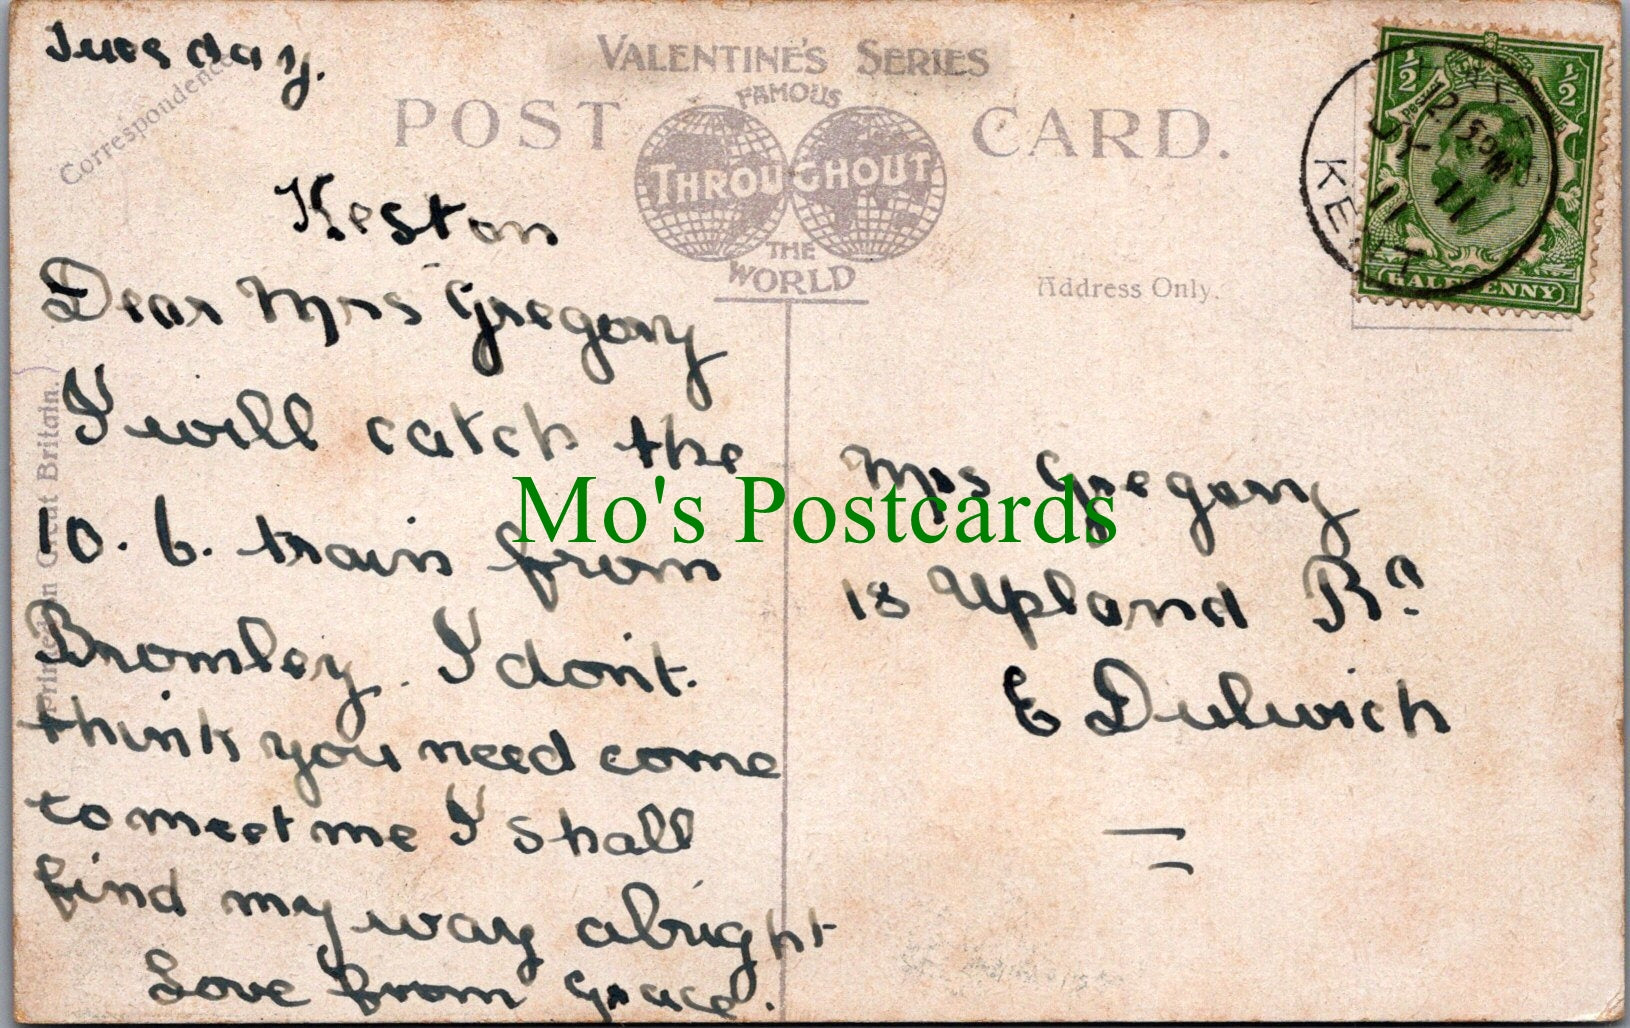 Tuesday.
Correspondence
VALENTINE'S SERIES
FAMOUS
POST CARD.
THROUGHOUT
THE
WORLD
Keston
Dear Mrs Gregory
I will catch the
10. 6. train from
Bromley. I don't
think you need come
to meet me I shall
find my way alright
Love from Grace.
Printed in Great Britain.
Address Only.
Mrs Gregory
18 Upland Rd.
E Dulwich
½ ½
HALFPENNY
2 15PM
JY 11
11
KENT
Mo's Postcards